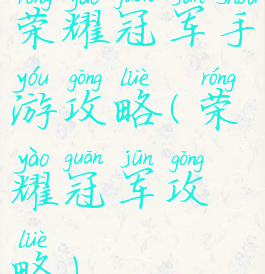 róng yào guān jūn shǒu
荣耀冠军手
yóu gōng lüè róng
游攻略(荣
yào guān jūn gōng
耀冠军攻
lüè
略)